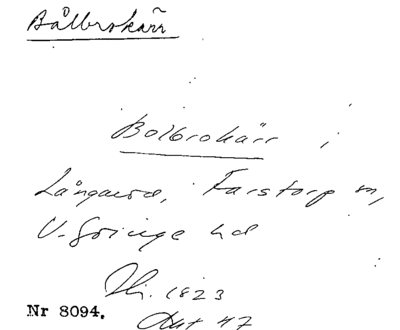 Bålbrokärr
Bolbrokärr i
Långaröd, Farstorp sn,
V-Göinge hd
Hi. 1823
Akt 47
Nr 8094.